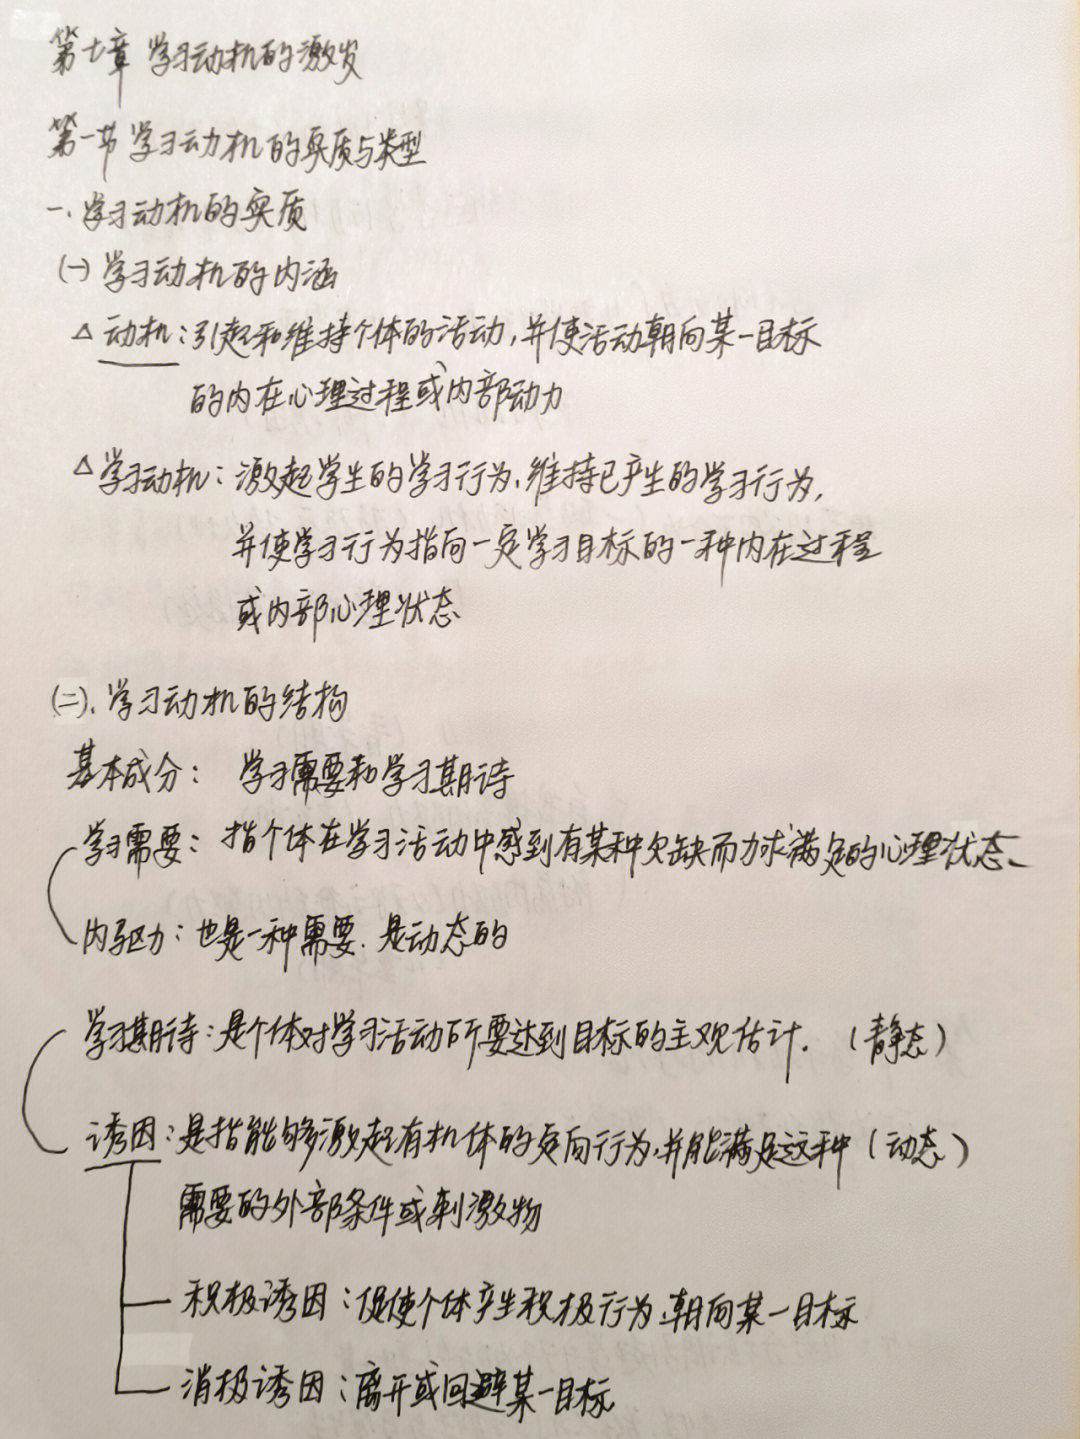 第七章 学习动机的激发
第一节 学习动机的实质与类型
一、学习动机的实质
(一) 学习动机的内涵
△ 动机：引起和维持个体的活动，并使活动朝向某一目标
的内在心理过程或内部动力
△ 学习动机：激起学生的学习行为、维持已产生的学习行为，
并使学习行为指向一定学习目标的一种内在过程
或内部心理状态
(二)、学习动机的结构
基本成分： 学习需要和学习期待
学习需要：指个体在学习活动中感到有某种欠缺而力求满足的心理状态、
内驱力：也是一种需要、是动态的
学习期待：是个体对学习活动所要达到目标的主观估计. （静态）
诱因：是指能够激起有机体的定向行为，并能满足这种（动态）
需要的外部条件或刺激物
积极诱因：促使个体产生积极行为、朝向某一目标
消极诱因：离开或回避某一目标